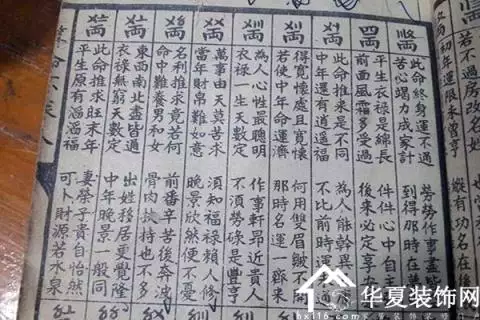 若不過房改名姓
初年運限未曾亨
縱有功名在
此命終身運不通
勞勞作事盡
苦心竭力成家計
到得那時在
四両
平生衣祿是綿長
件件心中自
前面風霜多受過
後來必定享
此命推來是不同
為人能幹異
中年還有逍遙福
不比前時運
得寬懷處且寬懷
何用雙眉皺不開
若使中年命運濟
那時名運一齊來
為人心性最聰明
作事軒昂近貴人
衣祿一生天數定
不須勞碌是豐亨
萬事由天莫苦求
須知福祿賴人修
當年財帛難如意
晚景欣然便不憂
名利推求竟若何
前番辛苦後奔波
命中難養男和女
骨肉扶持也不多
東西南北盡皆通
出姓移居更覺隆
衣祿無窮天數定
中年晚景一般同
此命推求旺末年
妻榮子貴自怡然
平生原有滔滔福
可卜財源若水泉
华夏装饰网